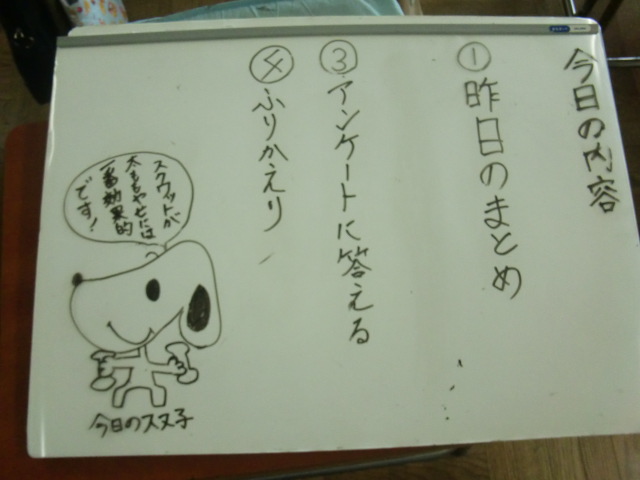 今日の内容
①昨日のまとめ
③アンケートに答える
④ふりかえり
スクワットが
太ももやせには
一番効果的
です!
今日のスヌ子